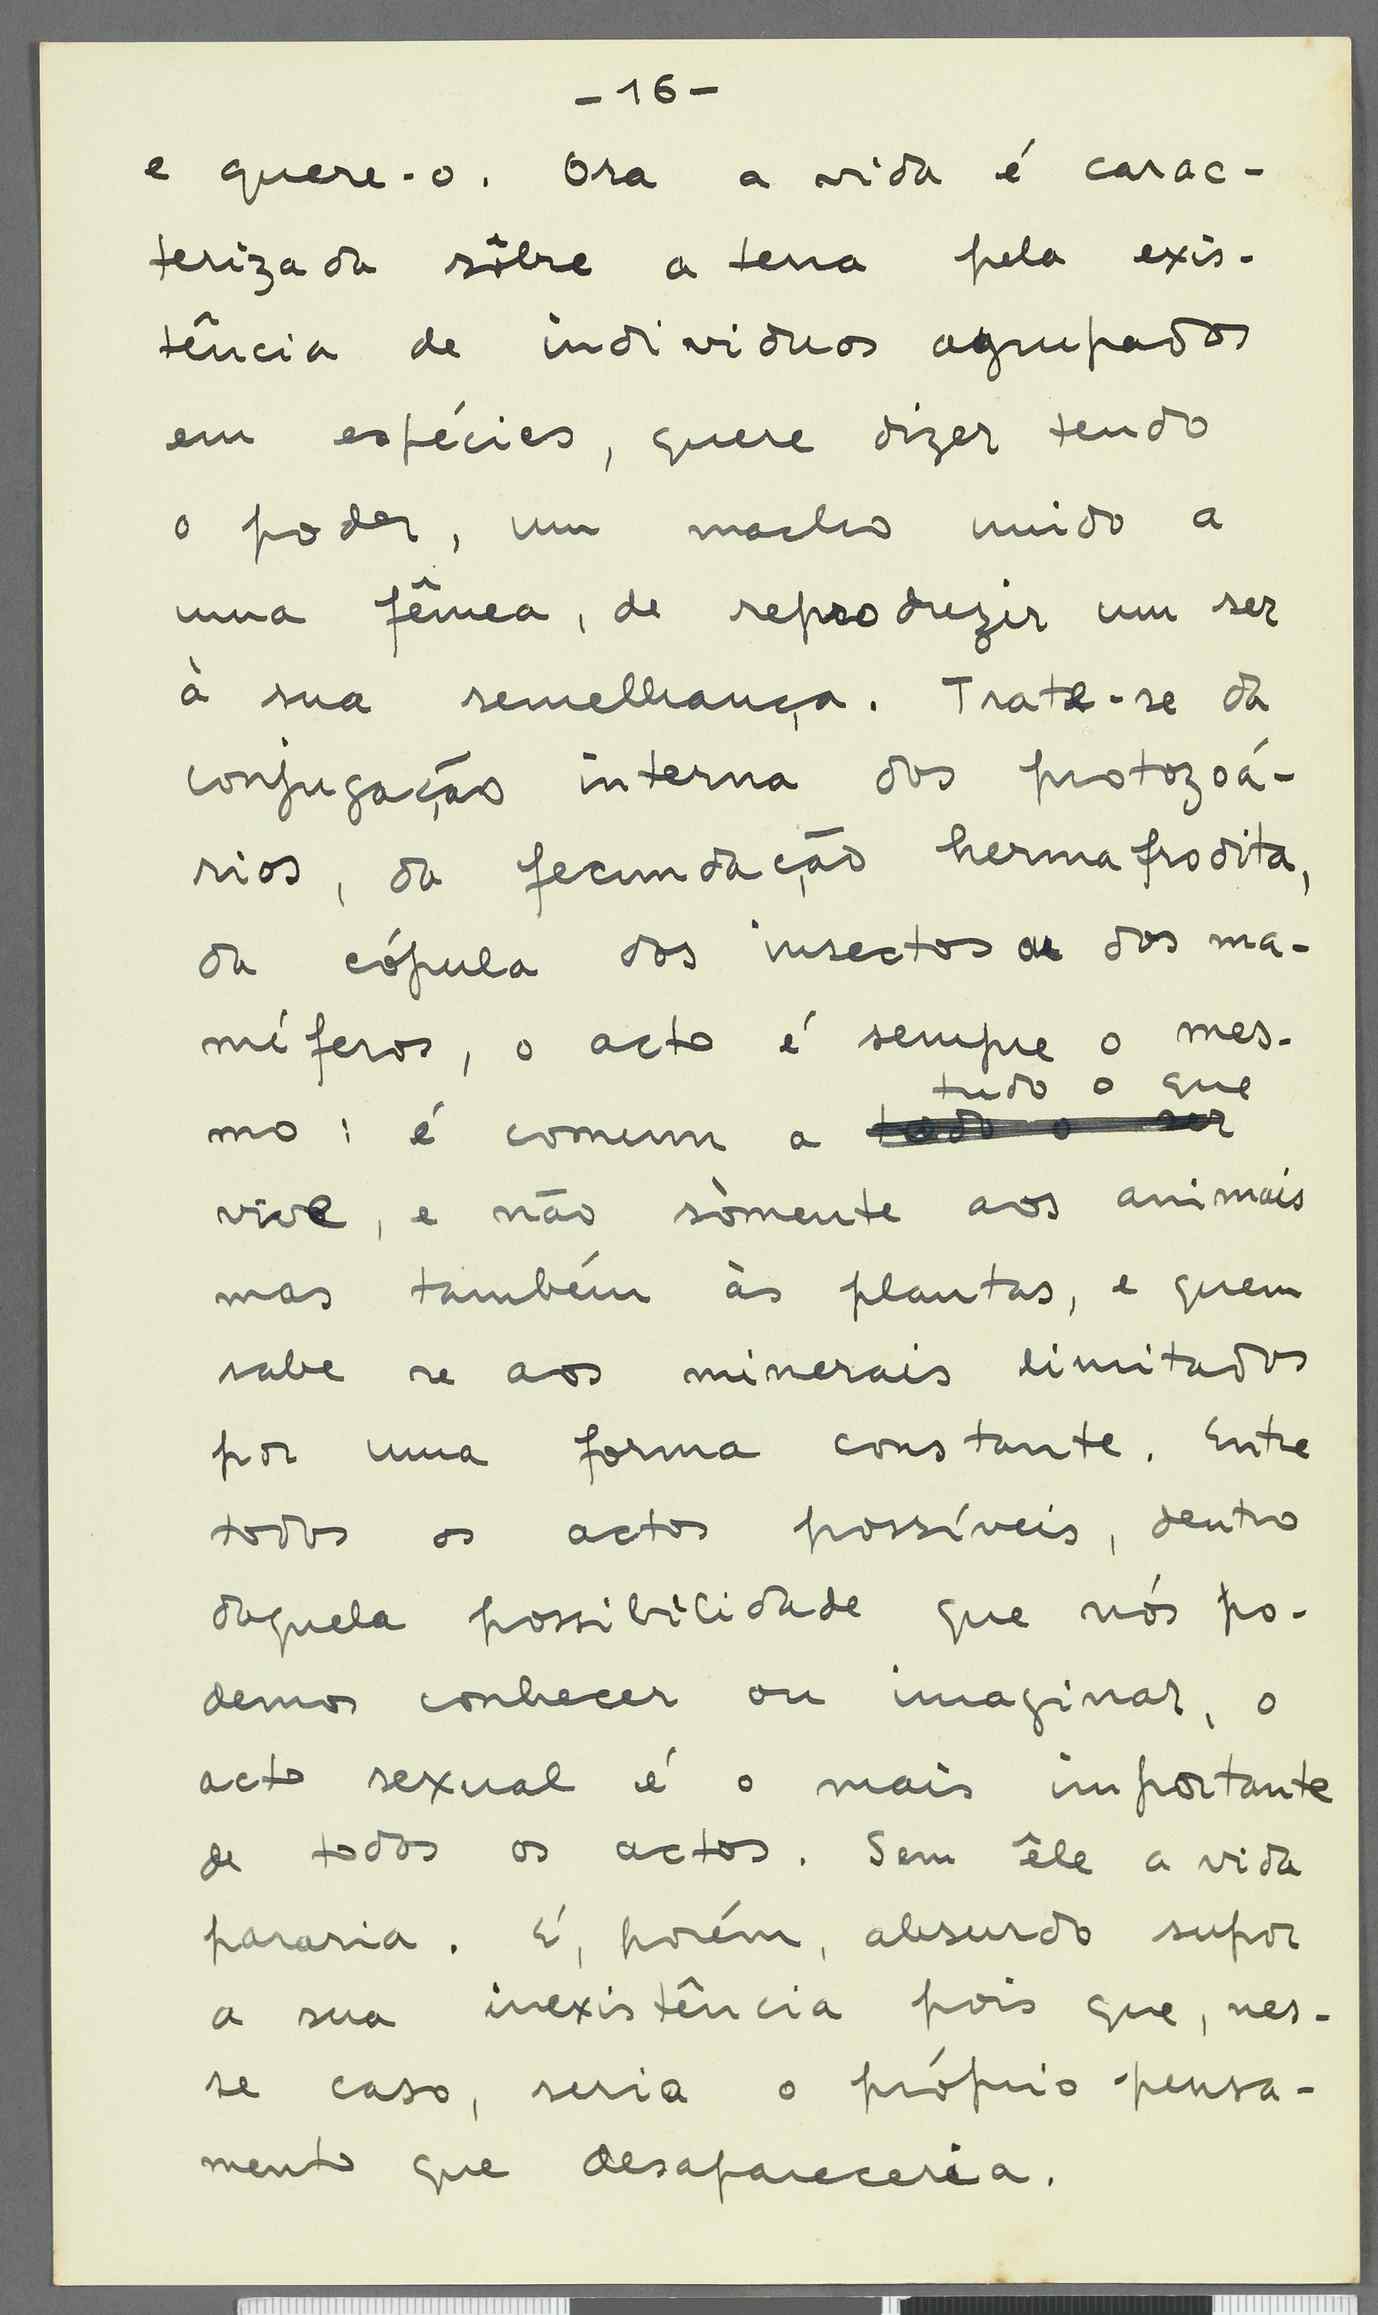 -16-
e quere-o. Ora a vida é carac-
terizada sôbre a terra pela exis-
tência de individuos agrupados
em espécies, quere dizer tendo
o poder, um macho unido a
uma fêmea, de reproduzir um ser
à sua semelhança. Trate-se da
conjugação interna dos protozoá-
rios, da fecundação hermafrodita,
da cópula dos insectos ou dos ma-
míferos, o acto é sempre o mes-
tudo o que
mo: é comum a todo o ser
vive, e não sòmente aos animais
mas também às plantas, e quem
sabe se aos minerais limitados
por uma forma constante. Entre
todos os actos possíveis, dentro
daquela possibilidade que nós po-
demos conhecer ou imaginar, o
acto sexual é o mais importante
de todos os actos. Sem êle a vida
pararia. É, porém, absurdo supor
a sua inexistência pois que, nes-
se caso, seria o próprio pensa-
mento que desapareceria.